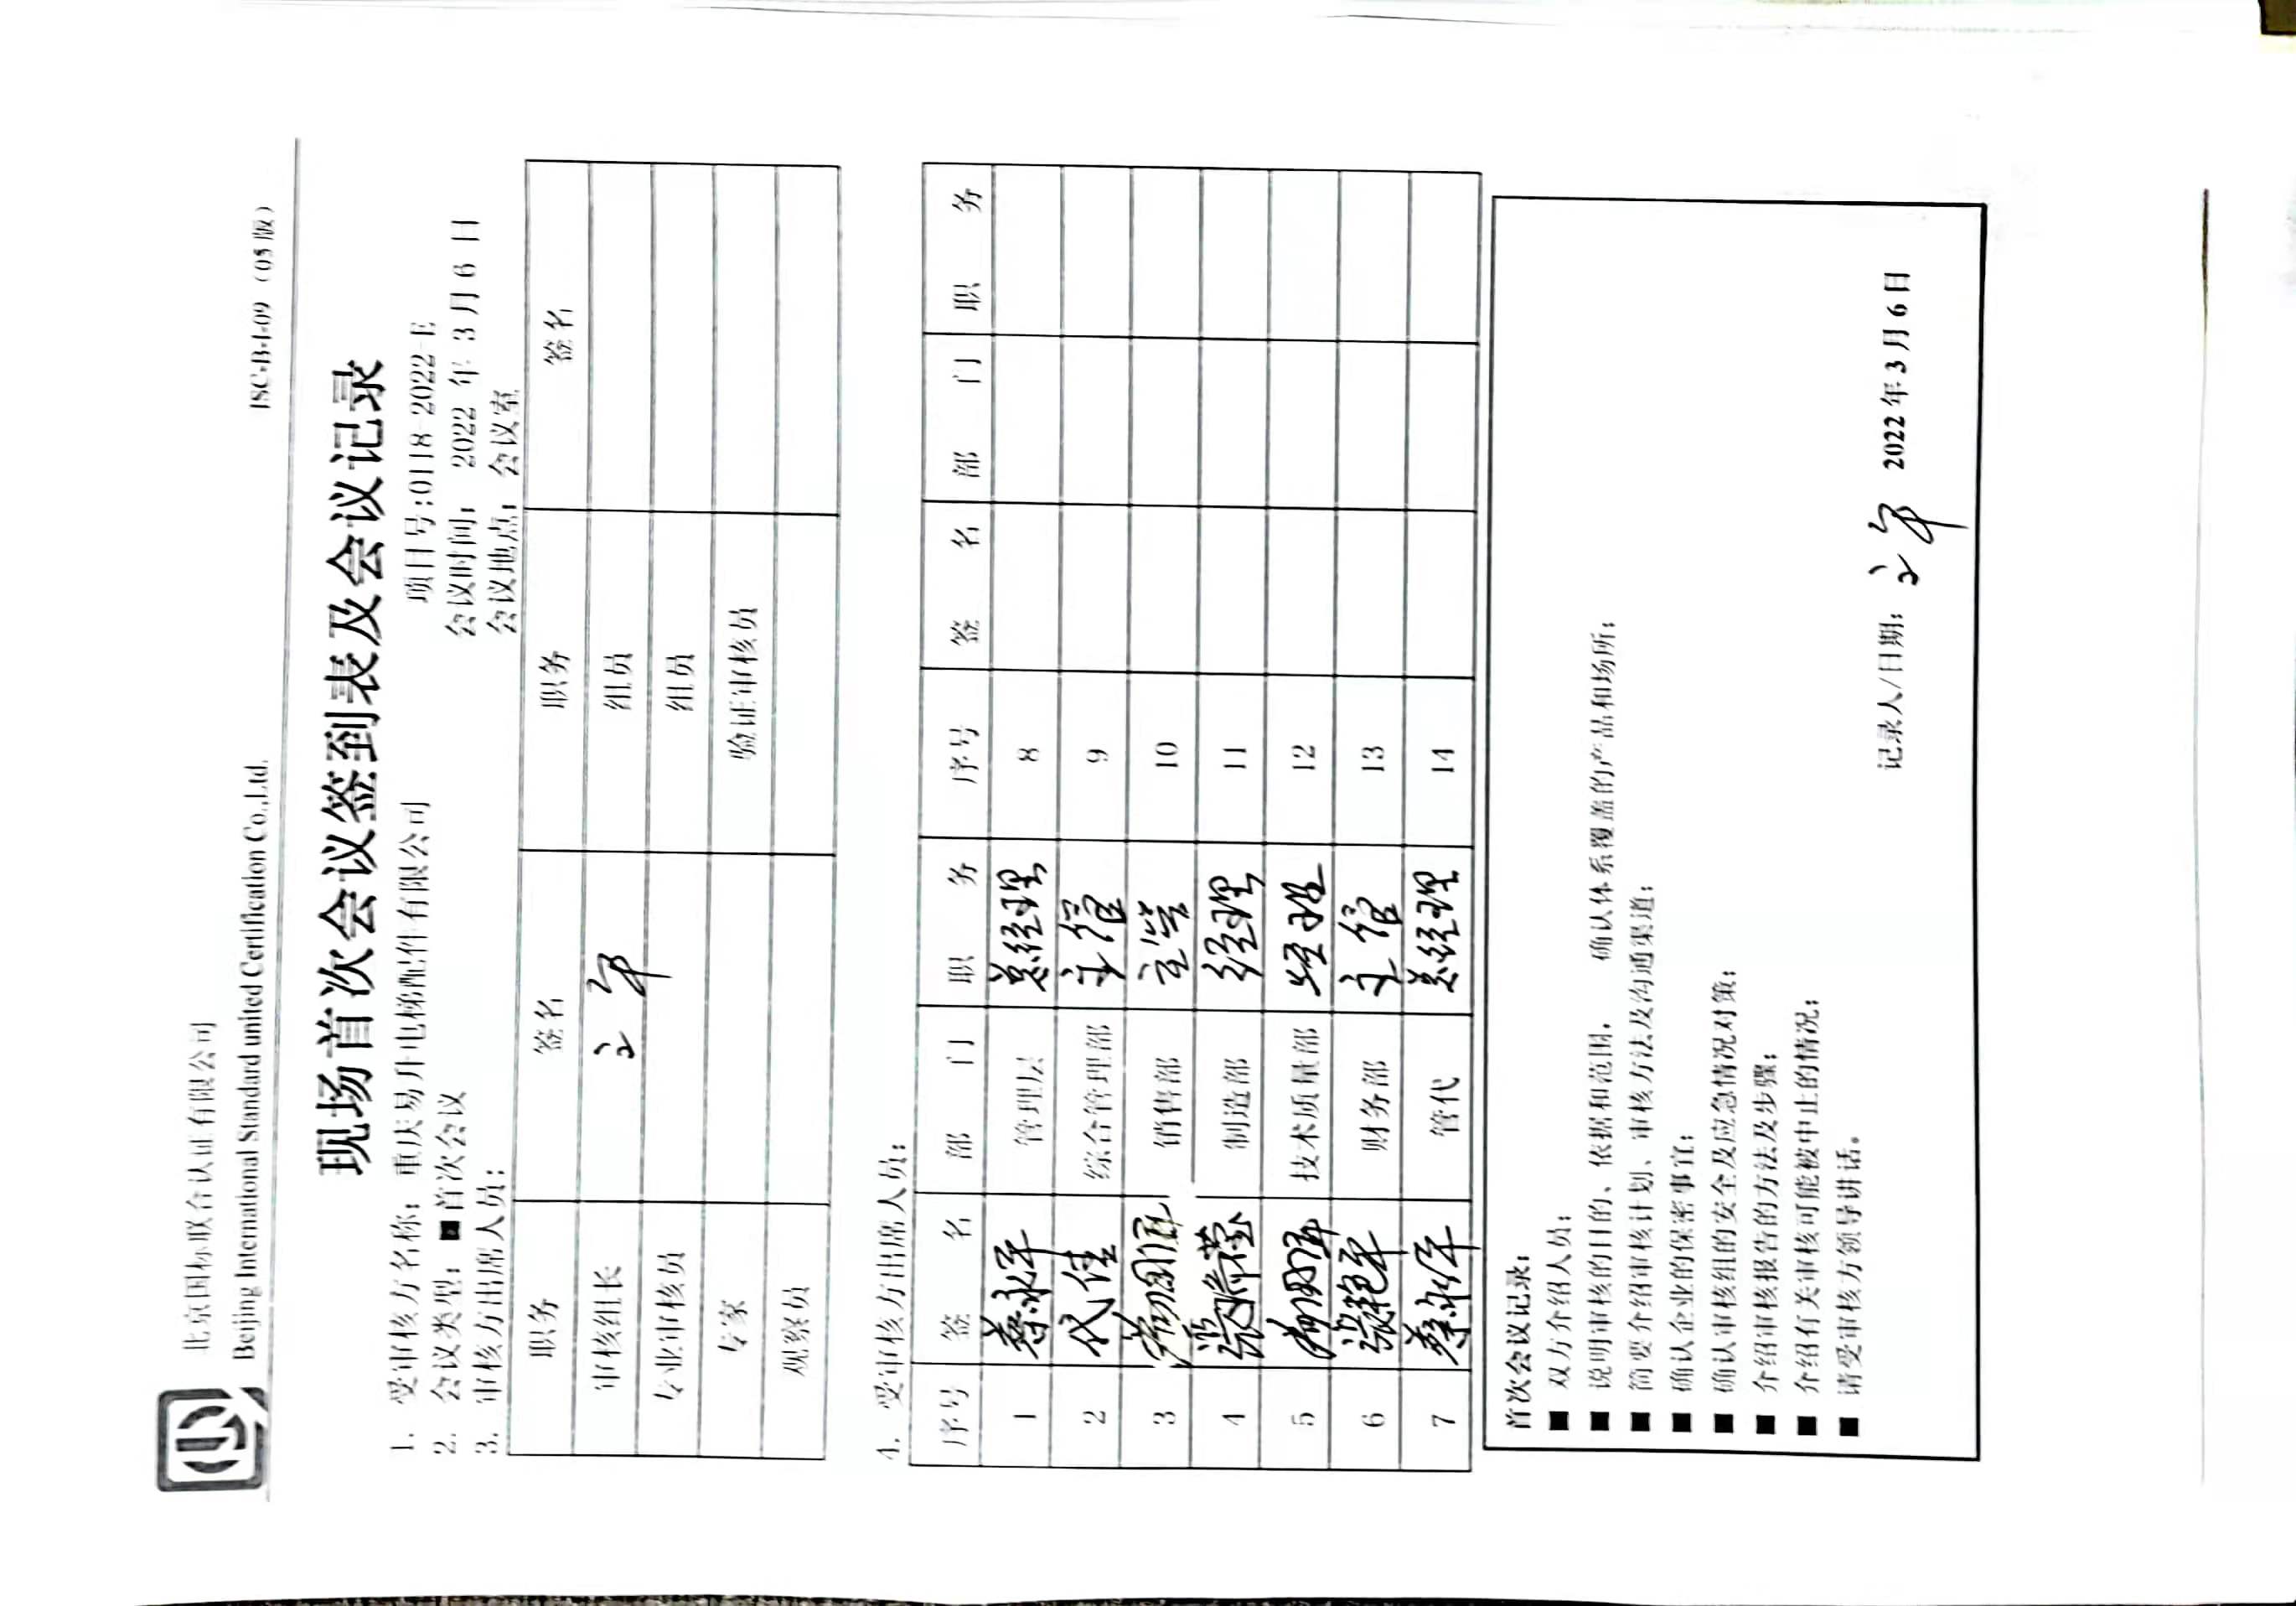 北京国标联合认证有限公司
Beijing International Standard united Certification Co.,Ltd.
ISC-B-I-09 (05版)
现场首次会议签到表及会议记录
1. 受审核方名称: 重庆易升电梯配件有限公司 项目号:0118-2022-E
2. 会议类型: ■首次会议 会议时间: 2022 年 3 月 6 日
3. 审核方出席人员: 会议地点: 会议室
职务 签名 职务 签名
审核组长 组员
专业审核员 组员
专家 验证审核员
观察员
4. 受审核方出席人员:
序号 签名 部门 职务 序号 签名 部门 职务
1 蔡永平 管理层 总经理 8
2 代佳 综合管理部 主管 9
3 销售部 主管 10
4 制造部 经理 11
5 技术质量部 经理 12
6 张艳平 财务部 主管 13
7 蔡永平 管代 总经理 14
首次会议记录:
■ 双方介绍人员;
■ 说明审核的目的、依据和范围, 确认体系覆盖的产品和场所;
■ 简要介绍审核计划、审核方法及沟通渠道;
■ 确认企业的保密事宜;
■ 确认审核组的安全及应急情况对策;
■ 介绍审核报告的方法及步骤;
■ 介绍有关审核可能被中止的情况;
■ 请受审核方领导讲话。
记录人/日期: 2022 年 3 月 6 日